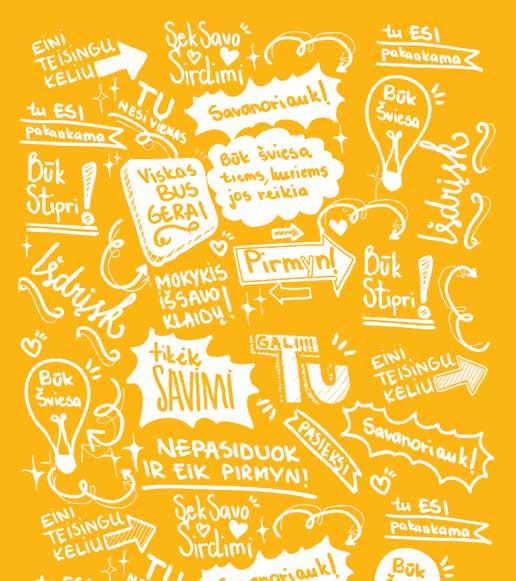 EINI
TEISINGU
KELIU
Sek Savo
Širdimi
tu ESI
pakankama
tu ESI
pakankama
TU
NESI VIENAS
Savanoriauk!
Būk
Šviesa
Būk
Stipri!
Viskas
BUS
GERAI
Būk šviesa
tiems, kuriems
jos reikia
Išdrįsk
Išdrįsk
MOKYKIS
IŠ SAVO
KLAIDŲ!
Pirmyn!
Būk
Stipri!
tikėk
SAVIMI
GALI!!!
TU
EINI
TEISINGU
KELIU
Būk
Šviesa
PASIEKSI
Savanoriauk!
NEPASIDUOK
IR EIK PIRMYN!
EINI
TEISINGU
KELIU
Sek Savo
Širdimi
tu ESI
pakankama
tu ESI
TU
Savanoriauk!
Būk